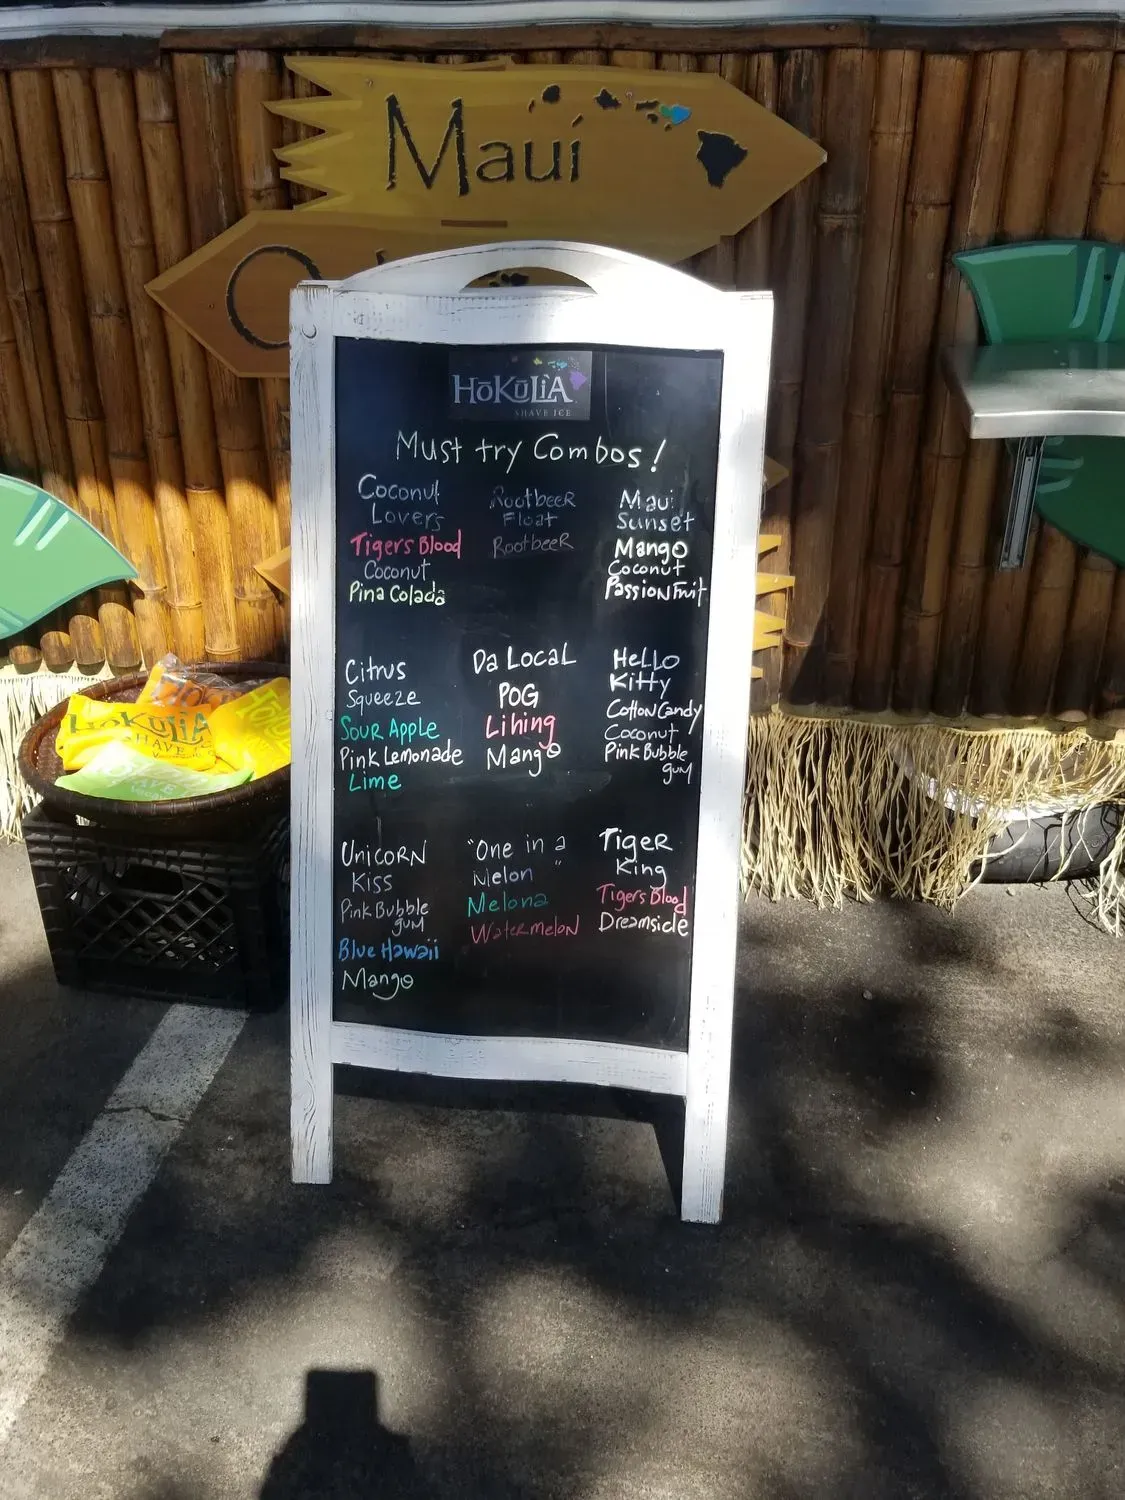 Maui
HōKūLiA
SHAVE ICE
Must try Combos!
Coconut
Lovers
Tigers Blood
Coconut
Pina Colada
Rootbeer
Float
Rootbeer
Maui
Sunset
Mango
Coconut
Passion Fruit
Citrus
Squeeze
Sour Apple
Pink Lemonade
Lime
Da Local
POG
Lihing
Mango
Hello
Kitty
Cotton Candy
Coconut
Pink Bubble
gum
Unicorn
Kiss
Pink Bubble
gum
Blue Hawaii
Mango
"One in a
Melon"
Melona
Watermelon
Tiger
King
Tigers Blood
Dreamsicle
HōKūLiA
SHAVE ICE